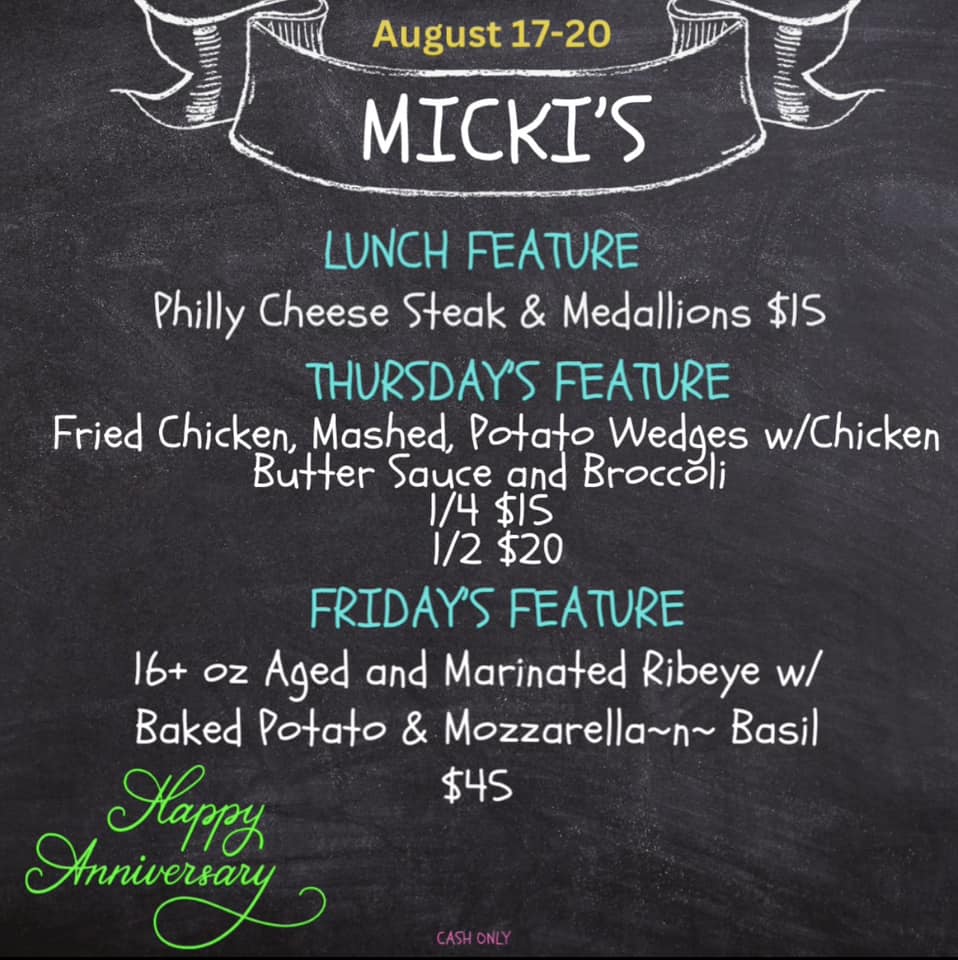 August 17-20
MICKI'S
LUNCH FEATURE
Philly Cheese Steak & Medallions $15
THURSDAY'S FEATURE
Fried Chicken, Mashed, Potato Wedges w/Chicken
Butter Sauce and Broccoli
1/4 $15
1/2 $20
FRIDAY'S FEATURE
16+ oz Aged and Marinated Ribeye w/
Baked Potato & Mozzarella~n~ Basil
$45
Happy
Anniversary
CASH ONLY